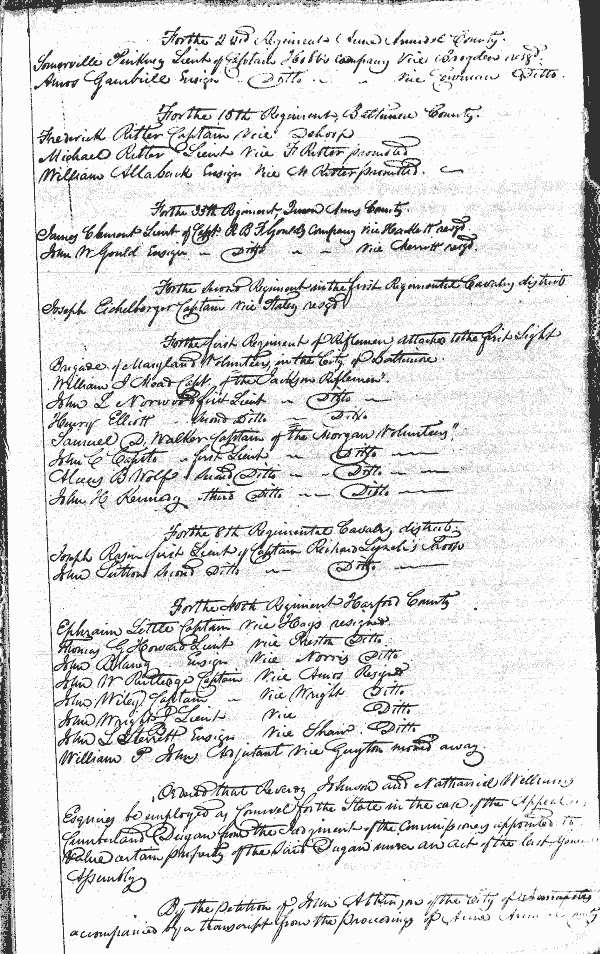 For the 22d Regiment Anne Arundel County.
Somerville Pinkney Lieut of Captain Hobbs company Vice Brogden resgd.
Amos Gambrill Ensign - Ditto - - Vice Ditto.
For the 15th Regiment, Baltimore County.
Frederick Ritter Captain Vice Dehoop
Michael Ritter Lieut Vice F Ritter promoted
William Allaback Ensign Vice M Ritter promoted.
For the 35th Regiment, Queen Anns County
James Clement Lieut of Capt R B F Goulds Company Vice Hackett resgd
John W Gould Ensign - Ditto - - Vice Merritt resgd.
For the second Regiment in the first Regimental Cavalry district
Joseph Eichelberger Captain Vice Staley resgd
For the first Regiment of Riflemen attached to the first Light
Brigade of Maryland Volunteers in the City of Baltimore.
William J Mead Capt. of the "Jackson Riflemen".
John L Norwood first Lieut - Ditto -
Henry Elliott - second Ditto - Ditto
Samuel D. Walker Captain of the "Morgan Volunteers"
John C - first Lieut - Ditto -
B Wolf - second Ditto - Ditto -
John H Kennedy third Ditto - Ditto -
For the 8th Regimental Cavalry district
Joseph first Lieut of Captain Richard Lynch's Troop
John Sutton second Ditto - Ditto. -
For the 40th Regiment Harford County
Ephraim Little Captain Vice Hays resigned
Thomas G Howard Lieut Vice Preston Ditto.
John Blaney Ensign Vice Norris Ditto
John W Rutledge Captain Vice Amos Resigned
John Wiley Captain - Vice Wright Ditto
John Wright J Lieut Vice Ditto
John L Sterrett Ensign Vice Shaw Ditto
William P Johns Adjutant Vice Guyton moved away
Ordered that Reverdy Johnson and Nathaniel Williams
Esquires be employed as Counsel for the State in the case of the Appeal
Cumberland Dugan from the Judgment of the Commissioners appointed to
value certain property of the said Dugan under an act of the last General
Assembly
By the petition of John Atkinson of the City of Annapolis
accompanied by a transcript from the proceedings of Anne Arundel County